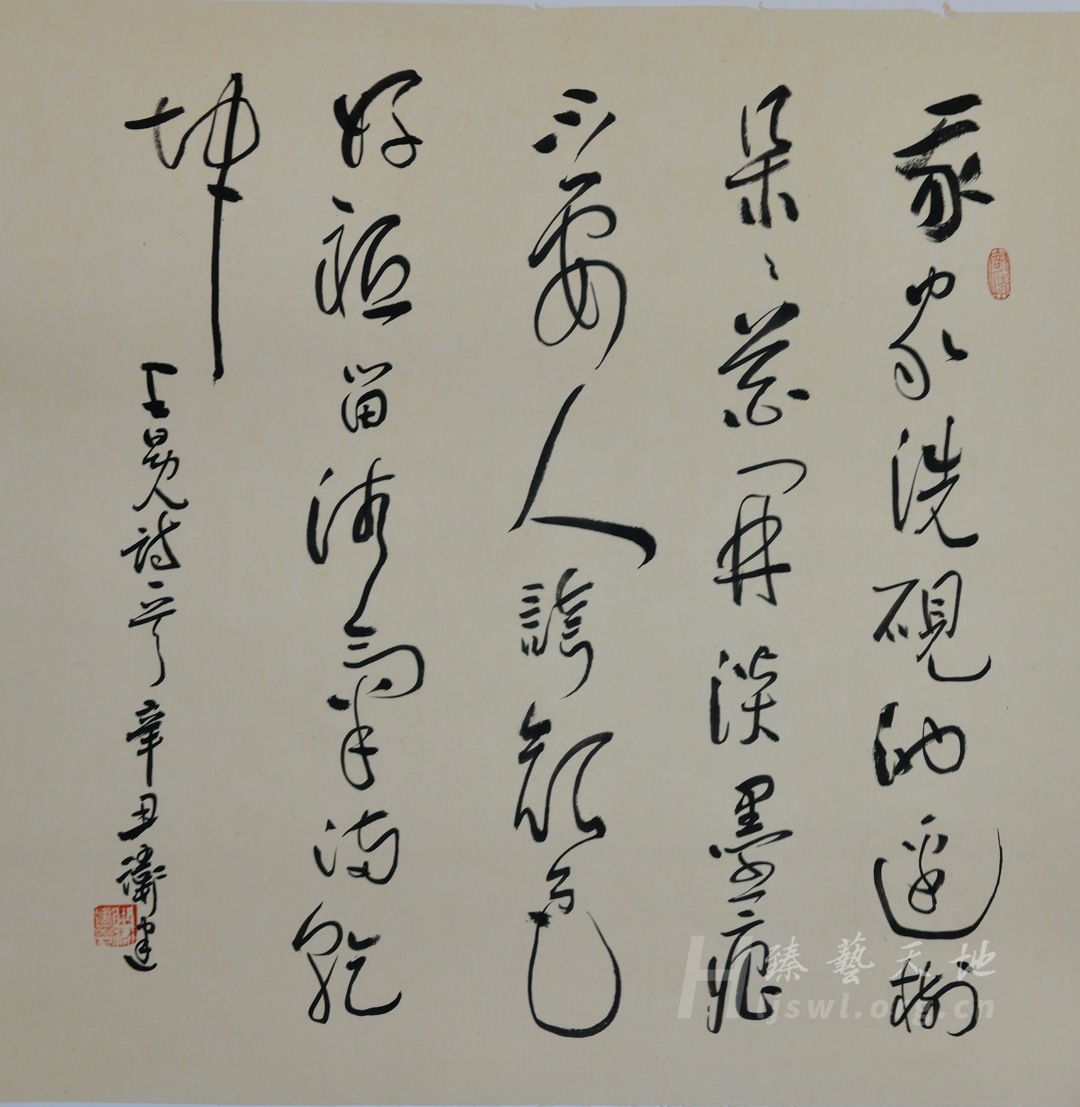 我家洗硯池邊樹
朵々花開淡墨痕
不要人誇顏色
好祗留清氣滿乾
坤
王冕詩一首 辛丑 衛建
臻藝天地